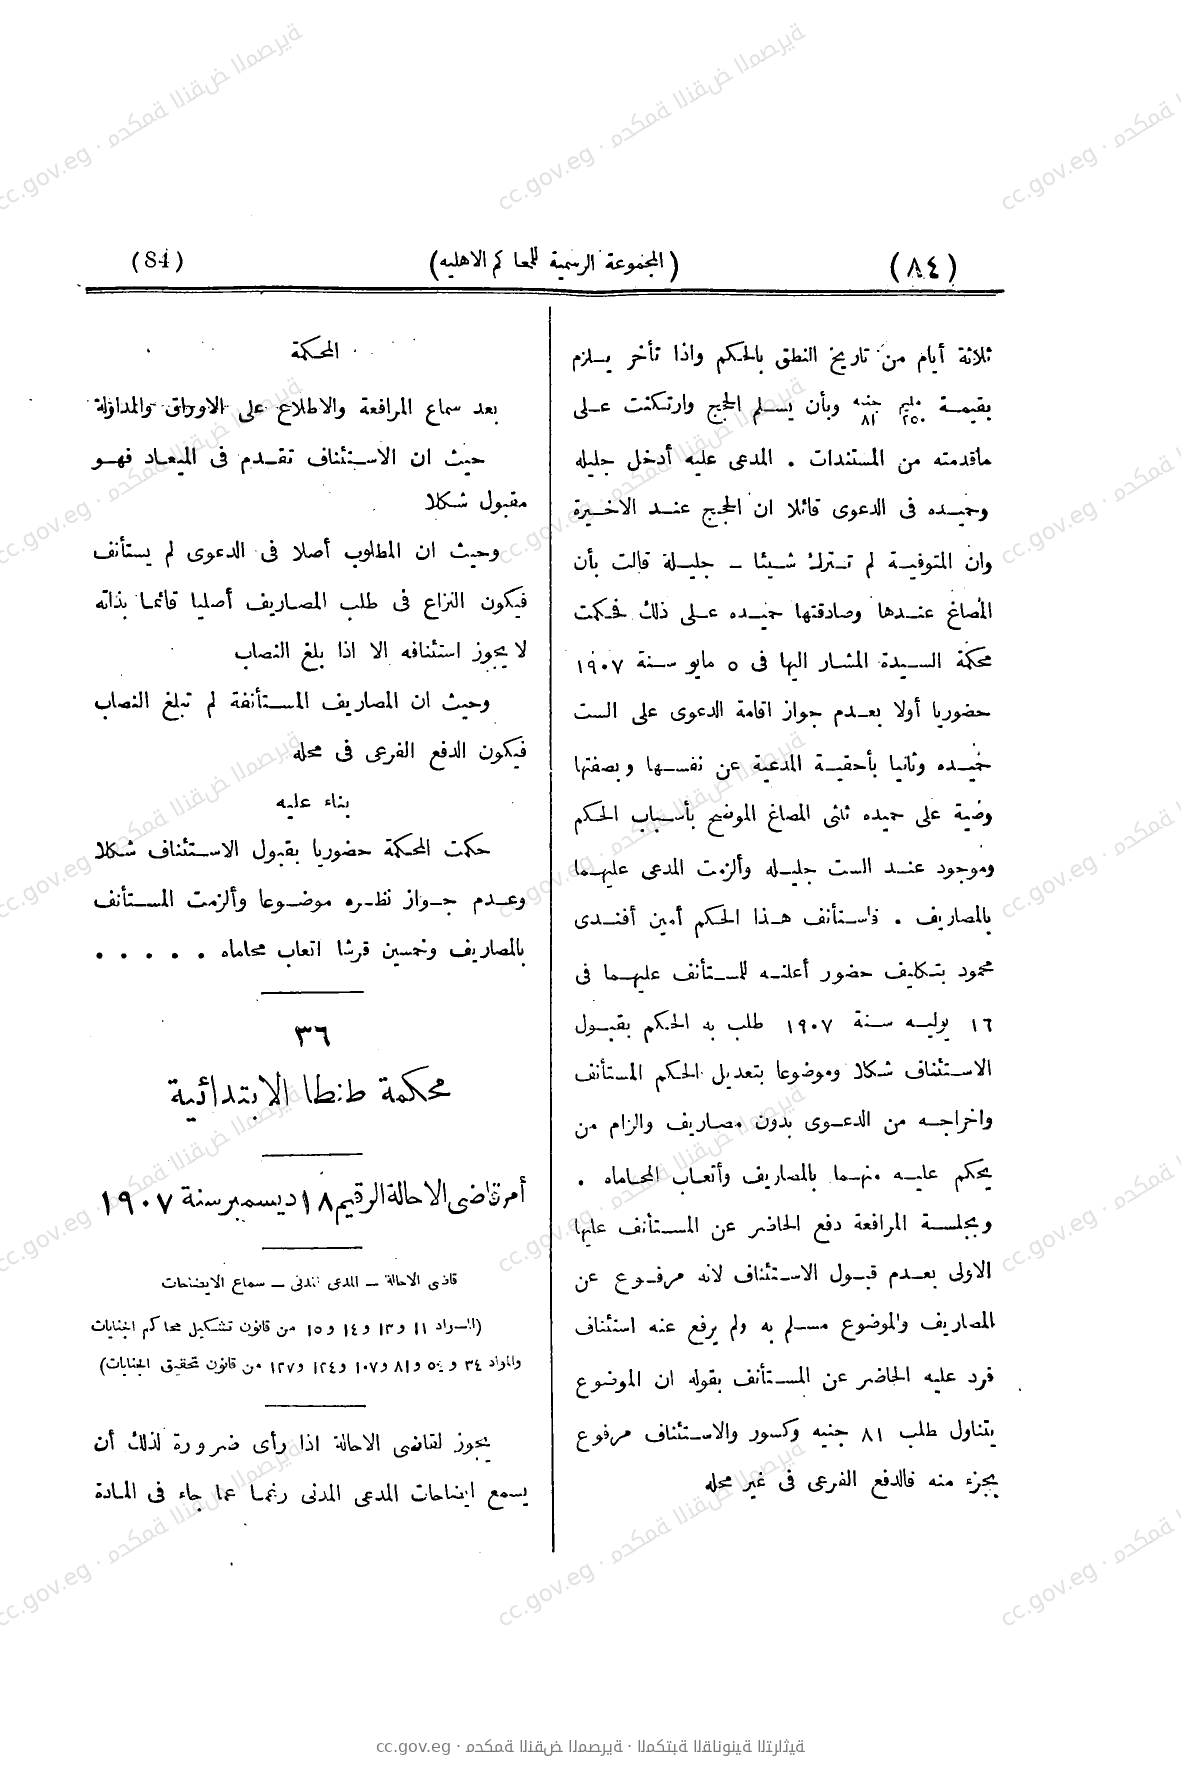 (٨٤)
(المجموعة الرسمية للمحاكم الاهليه)
(84)
ثلاثة أيام من تاريخ النطق بالحكم واذا تأخر يلزم
بقيمة مليم ٢٥٠ جنيه ٨١ وبأن يسلم الحجج وارتكنت على
ماقدمته من المستندات . المدعى عليه أدخل جليله
وحميده فى الدعوى قائلا ان الحجج عند الاخيرة
وان المتوفية لم تترك شيئا – جليلة قالت بأن
المصاغ عندها وصادقتها حميده على ذلك فحكمت
محكمة السيدة المشار اليها فى ٥ مايو سنة ١٩٠٧
حضوريا أولا بعدم جواز اقامة الدعوى على الست
حميده وثانيا بأحقية المدعية عن نفسها وبصفتها
وصية على حميده ثلثى المصاغ الموضح بأسباب الحكم
وموجود عند الست جليله وألزمت المدعى عليهما
بالمصاريف . فاستأنف هذا الحكم أمين أفندى
محمود بتكليف حضور أعلنه للمستأنف عليهما فى
١٦ يوليه سنة ١٩٠٧ طلب به الحكم بقبول
الاستئناف شكلا وموضوعا بتعديل الحكم المستأنف
واخراجه من الدعوى بدون مصاريف والزام من
يحكم عليه منهما بالمصاريف وأتعاب المحاماه .
وبجلسة المرافعة دفع الحاضر عن المستأنف عليها
الاولى بعدم قبول الاستئناف لانه مرفوع عن
المصاريف والموضوع مسلم به ولم يرفع عنه استئناف
فرد عليه الحاضر عن المستأنف بقوله ان الموضوع
يتناول طلب ٨١ جنيه وكسور والاستئناف مرفوع
بجزء منه فالدفع الفرعى فى غير محله
المحكمة
بعد سماع المرافعة والاطلاع على الاوراق والمداولة
حيث ان الاستئناف تقدم فى الميعاد فهو
مقبول شكلا
وحيث ان المطلوب أصلا فى الدعوى لم يستأنف
فيكون النزاع فى طلب المصاريف أصليا قائما بذاته
لا يجوز استئنافه الا اذا بلغ النصاب
وحيث ان المصاريف المستأنفة لم تبلغ النصاب
فيكون الدفع الفرعى فى محله
بناء عليه
حكمت المحكمة حضوريا بقبول الاستئناف شكلا
وعدم جواز نظره موضوعا وألزمت المستأنف
بالمصاريف وخمسين قرشا اتعاب محاماه . . . . .
٣٦
محكمة طنطا الابتدائية
أمر قاضى الاحالة الرقيم ١٨ ديسمبر سنة ١٩٠٧
قاضى الاحالة – المدعى المدنى – سماع الايضاحات
(المواد ١١ و١٣ و١٤ و١٥ من قانون تشكيل محاكم الجنايات
والمواد ٣٤ و٥٤ و٨١ و١٠٧ و١٢٤ و١٢٧ من قانون تحقيق الجنايات)
يجوز لقاضى الاحالة اذا رأى ضرورة لذلك أن
يسمع ايضاحات المدعى المدنى رغما عما جاء فى المادة
cc.gov.eg · محكمة النقض المصرية · المكتبة القانونية التراثية